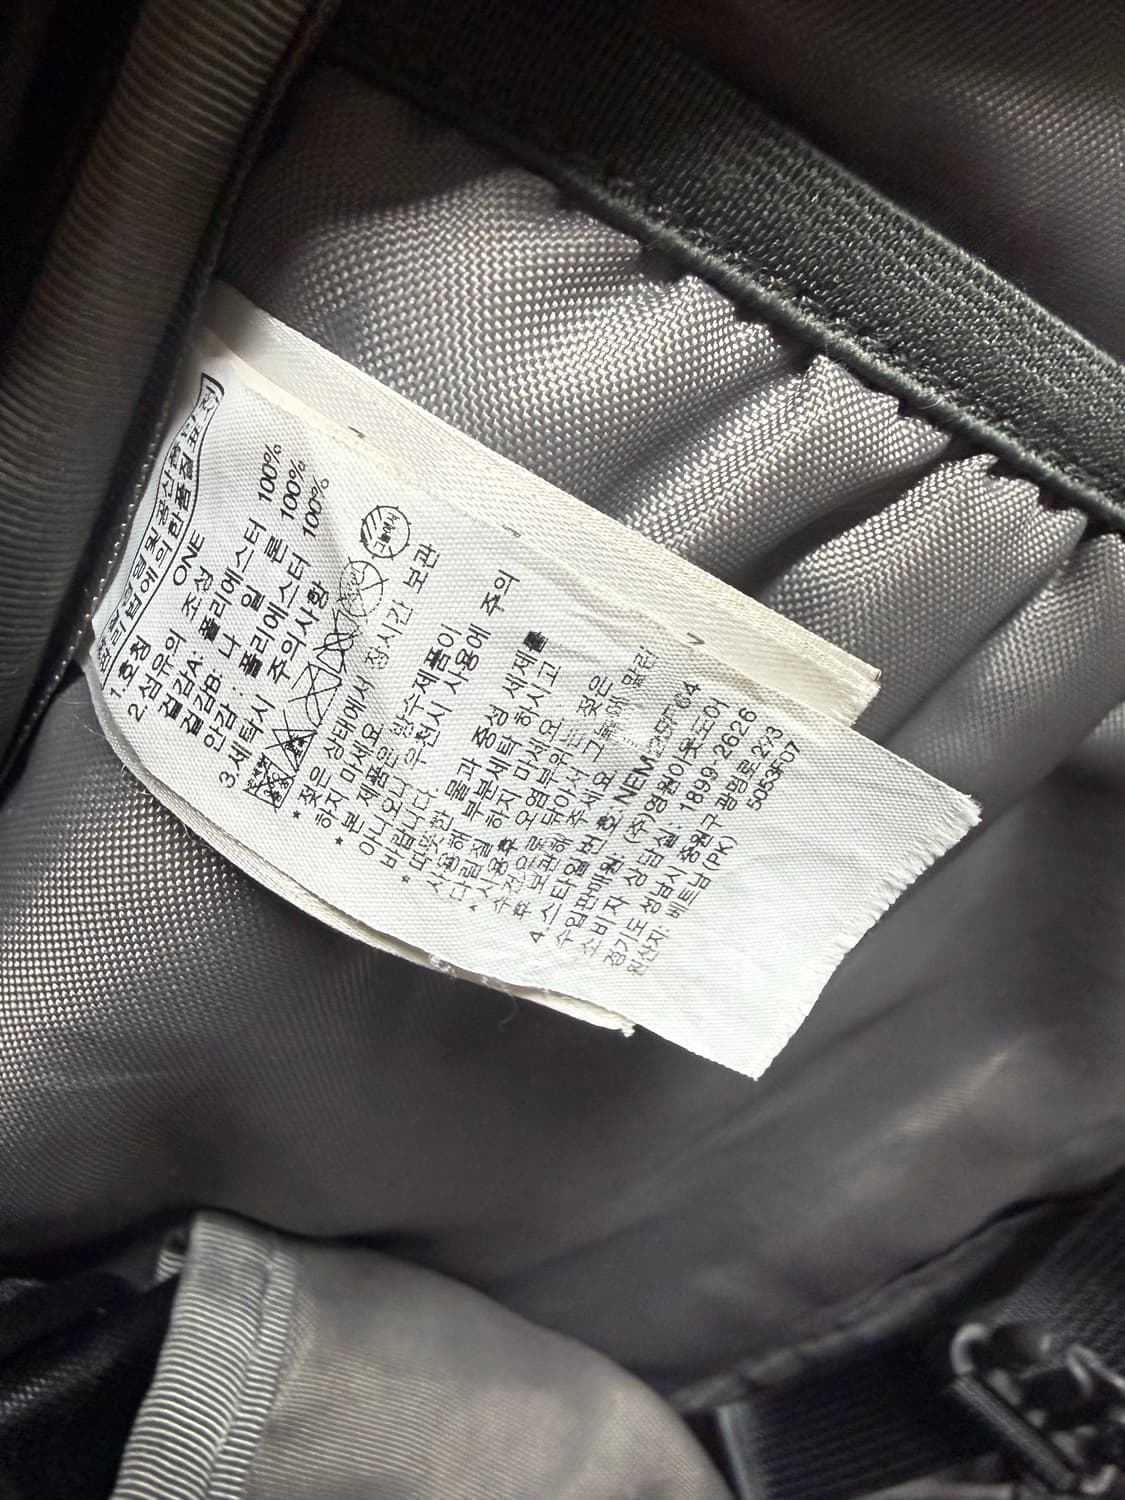 품질경영 및 공산품안전
관리법에 의한 품질표시
1.호칭 ONE
2.섬유의 조성
겉감A: 폴리에스터 100%
겉감B: 나 일 론 100%
안감 : 폴리에스터 100%
3.세탁시 주의사항
* 젖은 상태에서 장시간 보관
하지 마세요.
* 본 제품은 방수제품이
아니오니 우천시 사용에 주의
바랍니다.
* 따뜻한 물과 중성 세제를
사용해 부분세탁 하시고
다림질 하지 마세요.
* 사용후 오염부위는 젖은
수건으로 닦아서 그늘에 말린
후 보관해 주세요.
4.스타일번호:NEM
수입판매원 (주)영원아웃도어
소비자 상담실: 1899-2626
경기도 성남시 중원구 갈마치로 2 3
원산지: 베트남(PK) 503 F07